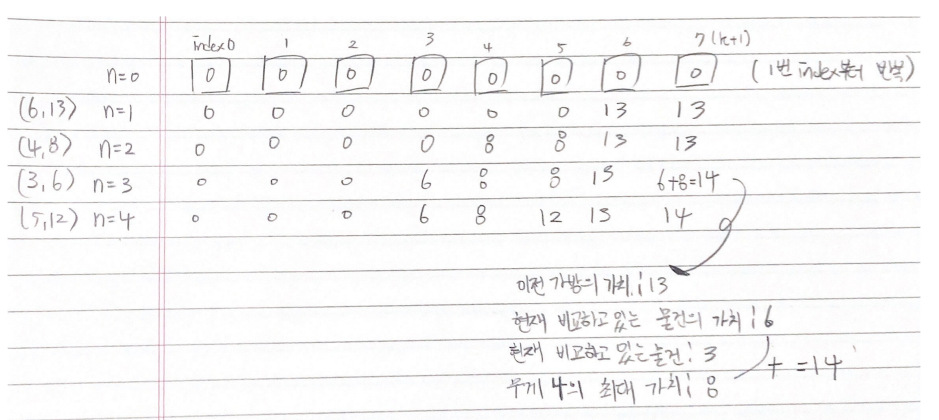 index0 1 2 3 4 5 6 7 (k+1)
n=0 0 0 0 0 0 0 0 0 (1번 index부터 반복)
(6,13) n=1 0 0 0 0 0 0 13 13
(4,8) n=2 0 0 0 0 8 8 13 13
(3,6) n=3 0 0 0 6 8 8 13 6+8=14
(5,12) n=4 0 0 0 6 8 12 13 14
이전 가방의 가치 : 13
현재 비교하고 있는 물건의 가치 : 6
현재 비교하고 있는 물건 : 3
무게 4의 최대 가치 : 8
+ =14